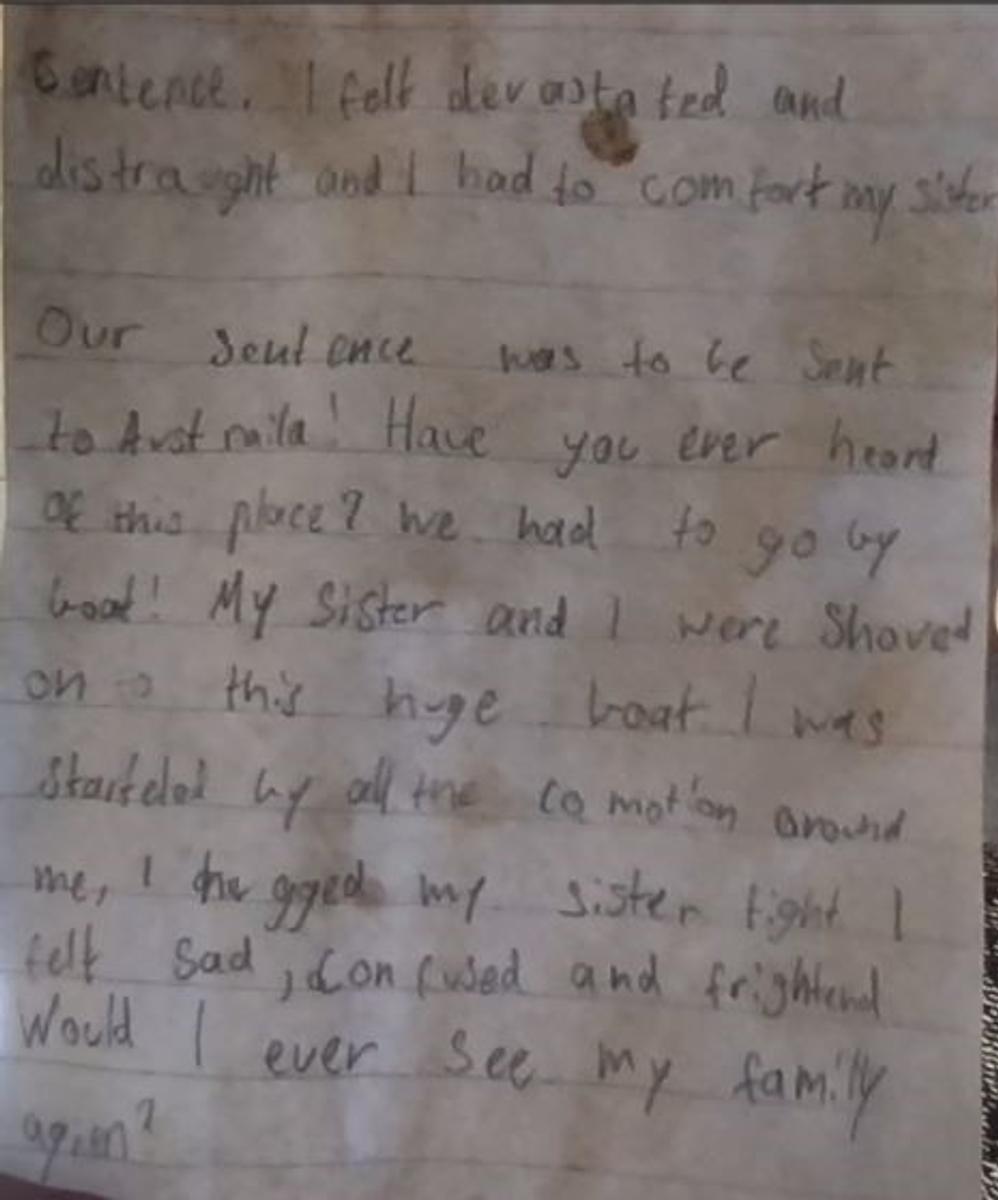 Sentence. I felt devastated and
distraught and I had to comfort my sister
Our sentence was to be sent
to Austraila! Have you ever heard
of this place? we had to go by
boat! My sister and I were Shoved
on to this huge boat I was
Starteled by all the comotion around
me, I hugged my sister tight I
felt Sad, confused and frightend
Would I ever see my family
again?